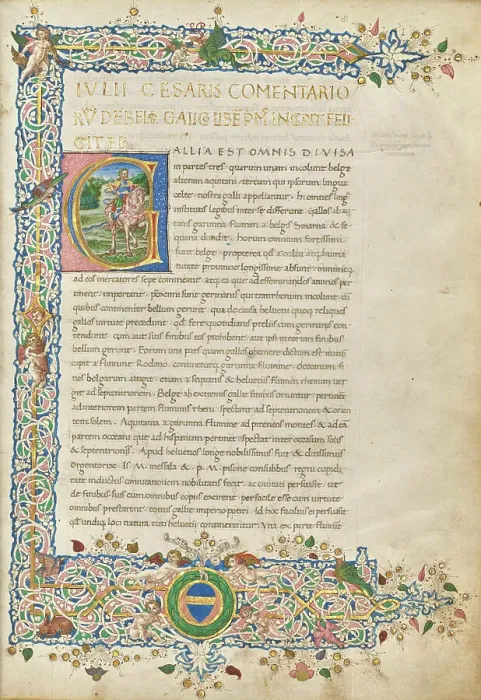 IVLII CESARIS COMENTARIO
RṼ DE BELLO GALICO LIBER PM̃ INCIPIT FELI
CITER
GALLIA EST OMNIS DIVISA
in partes tres. quarum unam incolunt belge
alteram aquitani. tertiam qui ipsorum lingua
celte nostra galli appellantur. hi omnes linguis
institutis legibus inter se differunt. gallos ab aq
tanis garumna flumen a belgis matrona & se
quana diuidit. horum omnium fortissimi
sunt belge propterea quod a cultu atque huma
nitate prouincie longissime absunt. minimeque
ad eos mercatores sepe comineant. atque ea que ad effeminandos animos per
tinent important. proximi sunt germanis qui trans rhenum incolunt cũ
quibus continenter bellum gerunt. qua de causa heluetii quoque reliquos
gallos uirtute precedunt quod fere quotidianis preliis cum germanis con
tendunt cum aut suis finibus eos prohibent aut ipsi in eorum finibus
bellum gerunt. Eorum una pars quam gallos obtinere dictum est initiũ
capit a flumine Rodano. continetur garunna flumine. oceanum fi
nes belgarum attigit. etiam a sequanis & heluetiis flumen rhenum uer
git ad septentrionem. Belge ab extremis gallie finibus oriuntur. pertinent
ad interiorem partem fluminis rheni. spectant ad septentrionem & orien
tem solem. Aquitania a garunna flumine ad pireneos montes & ad eã
partem oceani que ad hispaniam pertinet spectat inter occasum solis
& septentriones. Apud heluetios longe nobilissimus fuit & ditissimus
Orgentorix. Is M. messala & P. M. pisone consulibus regni cupidi
tate inductus coniurationem nobilitatis fecit. ac ciuitati persuasit ut
de finibus suis cum omnibus copiis exirent perfacile esse cum uirtute
omnibus prestarent. totius gallie imperio potiri. Id hoc facilius ei persuasit
quod undique loci natura cum heluetii continerentur. Vna ex parte flumine